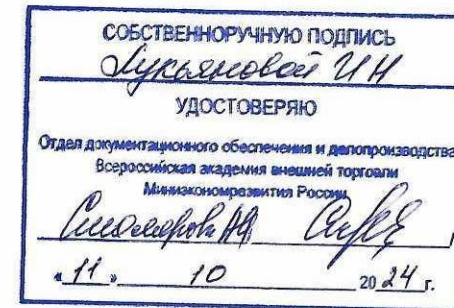 СОБСТВЕННОРУЧНУЮ ПОДПИСЬ
Лукьяновой И Н
УДОСТОВЕРЯЮ
Отдел документационного обеспечения и делопроизводства
Всероссийская академия внешней торговли
Минэкономразвития России
« 11 » 10 20 24 г.